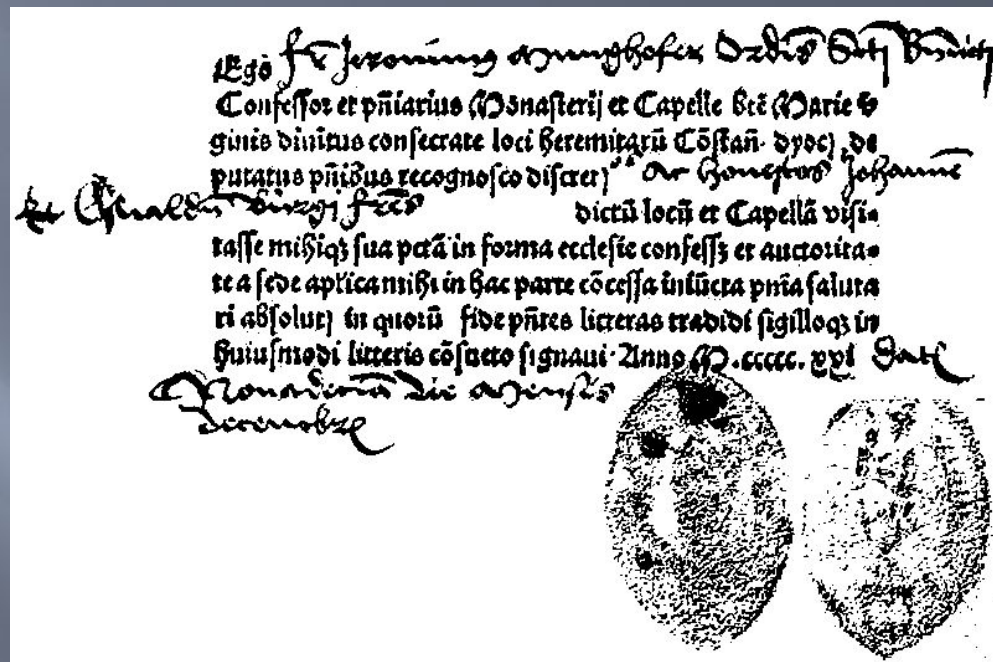 Egō fr Jeronimus Munghofer Ordīs Scti Bn̄dicti
Confessor et pn̄iarius Monasterij et Capelle btē Marie v̄
ginis divinitus consecrate loci heremitarū Cōstan̄. dyoc) de
putatus pn̄ibus recognosco discret) ac honestos Johannē
et Oswaldū fr̄es dictū locū et Capellā visi-
tasse mihiq; sua pctā in forma ecclesie confess; et auctorita-
te a sede aplica mihi in hac parte cōcessa iniūcta pn̄ia saluta
ri absolut) in quorū fide pn̄tes litteras tradidi sigilloq; in
huiusmodi litteris cōsueto signavi. Anno M.ccccc.xxi Dat
Nonadecima Die Mensis
decembr